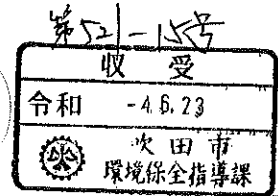 第521-15号
収受
令和 -4.6.23
吹田市
環境保全指導課